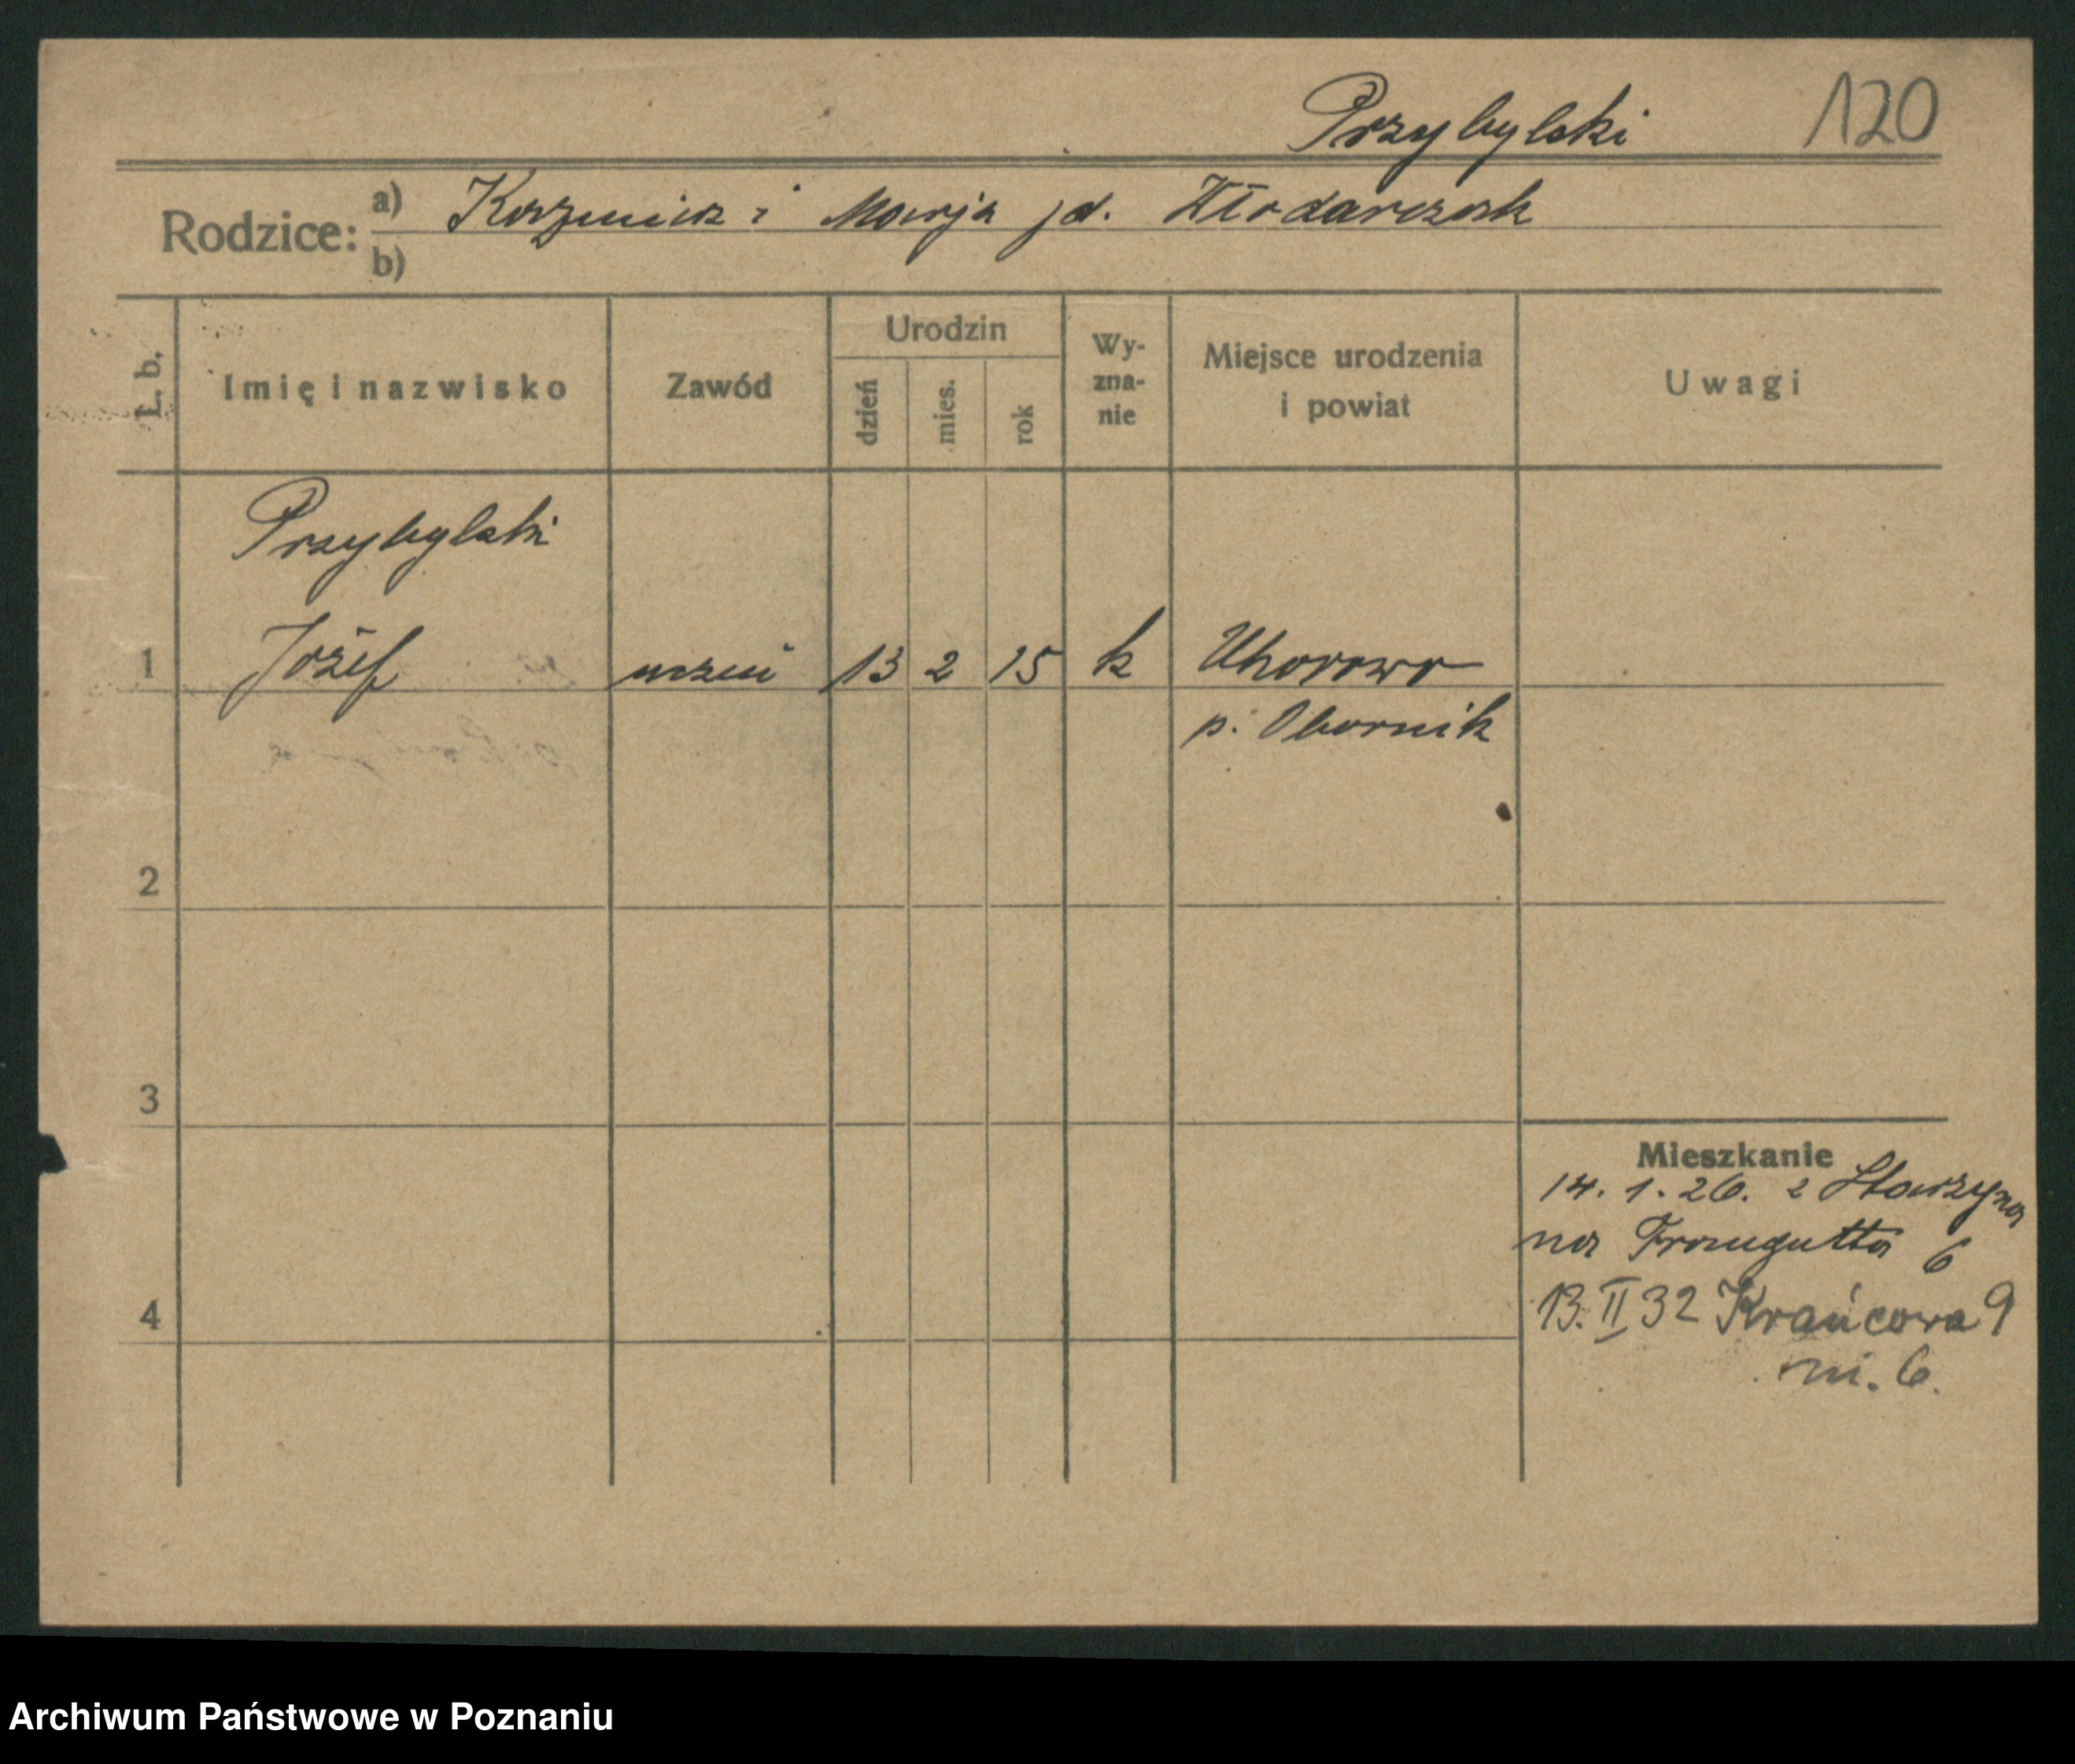 Przybylski 120
Rodzice: a) Kazmierz i Marja jd. Włodarczak
b)
L. b. Imię i nazwisko Zawód Urodzin dzień mies. rok Wy-zna-nie Miejsce urodzenia i powiat Uwagi
Przybylski
1 Józef uczeń 13 2 15 k
p. Obornik
2
3
Mieszkanie
14. 1. 26. z Starzyna
na Traugutta 6
4 13. II 32 Krańcowa 9
m. 6.
Archiwum Państwowe w Poznaniu